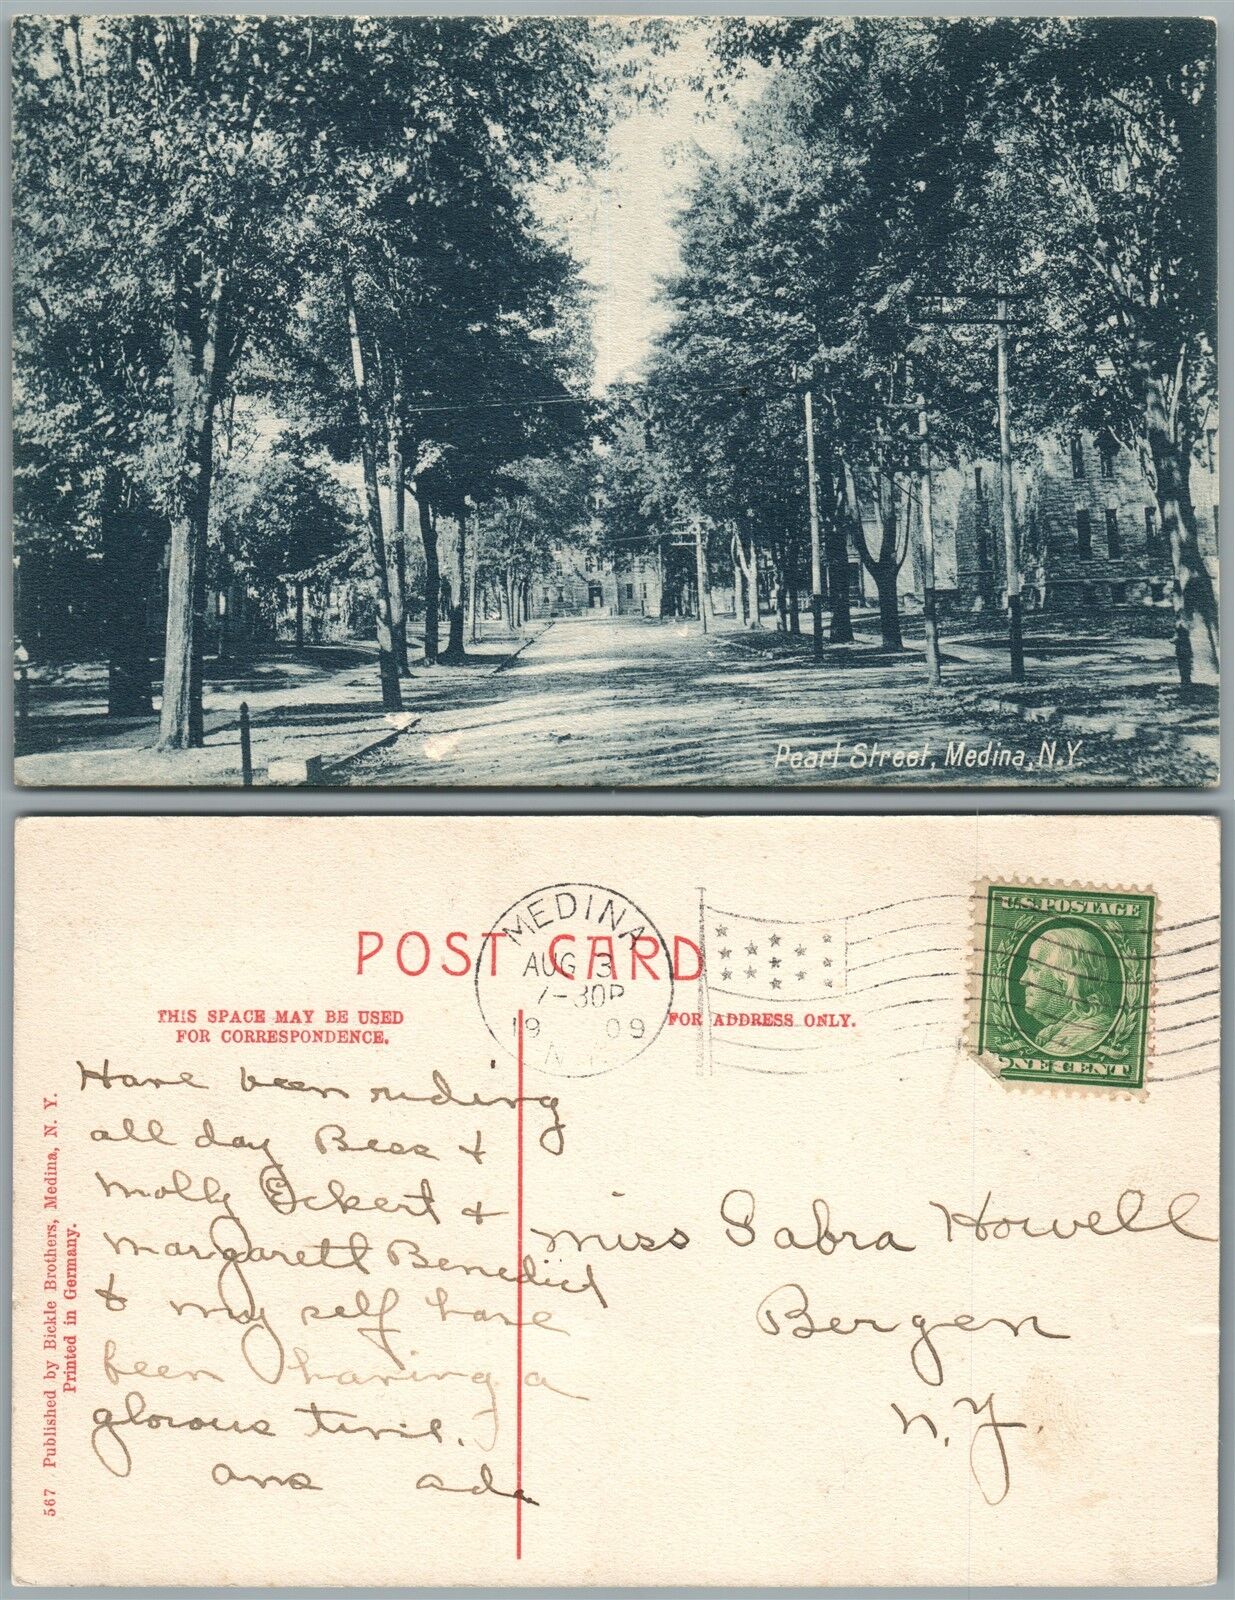 Pearl Street, Medina, N.Y.
POST CARD
MEDINA
AUG 3
7-30P
19 09
N.Y.
U.S. POSTAGE
ONE CENT
THIS SPACE MAY BE USED
FOR CORRESPONDENCE.
FOR ADDRESS ONLY.
Have been riding
all day Bess &
Molly Eckert &
Margarett Benedict
& my self have
been having a
glorous time.
ans ada
Miss Sabra Howell
Bergen
N.Y.
567 Published by Bickle Brothers, Medina, N. Y.
Printed in Germany.